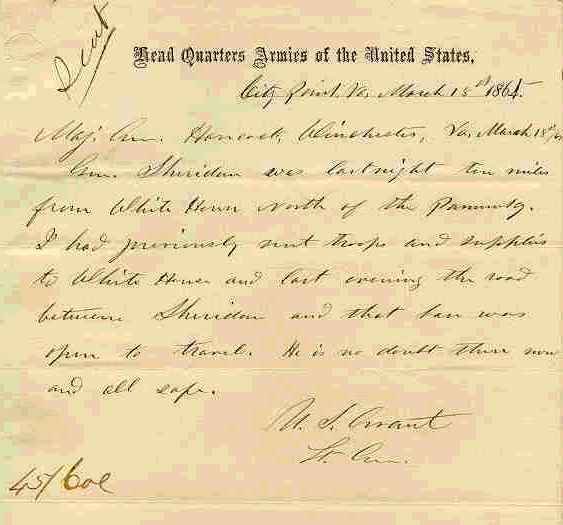 Sent
Head Quarters Armies of the United States,
City Point, Va, March 18th 1865.
Maj. Gen. Hancock, Winchester, Va, March 18th/65
Gen. Sheridan was last night ten miles
from White House North of the Pamunky.
I had previously sent troops and supplies
to White House and last evening the road
between Sheridan and that was
open to travel. He is no doubt there now
and all safe.
U. S. Grant
Lt. Gen.
45/